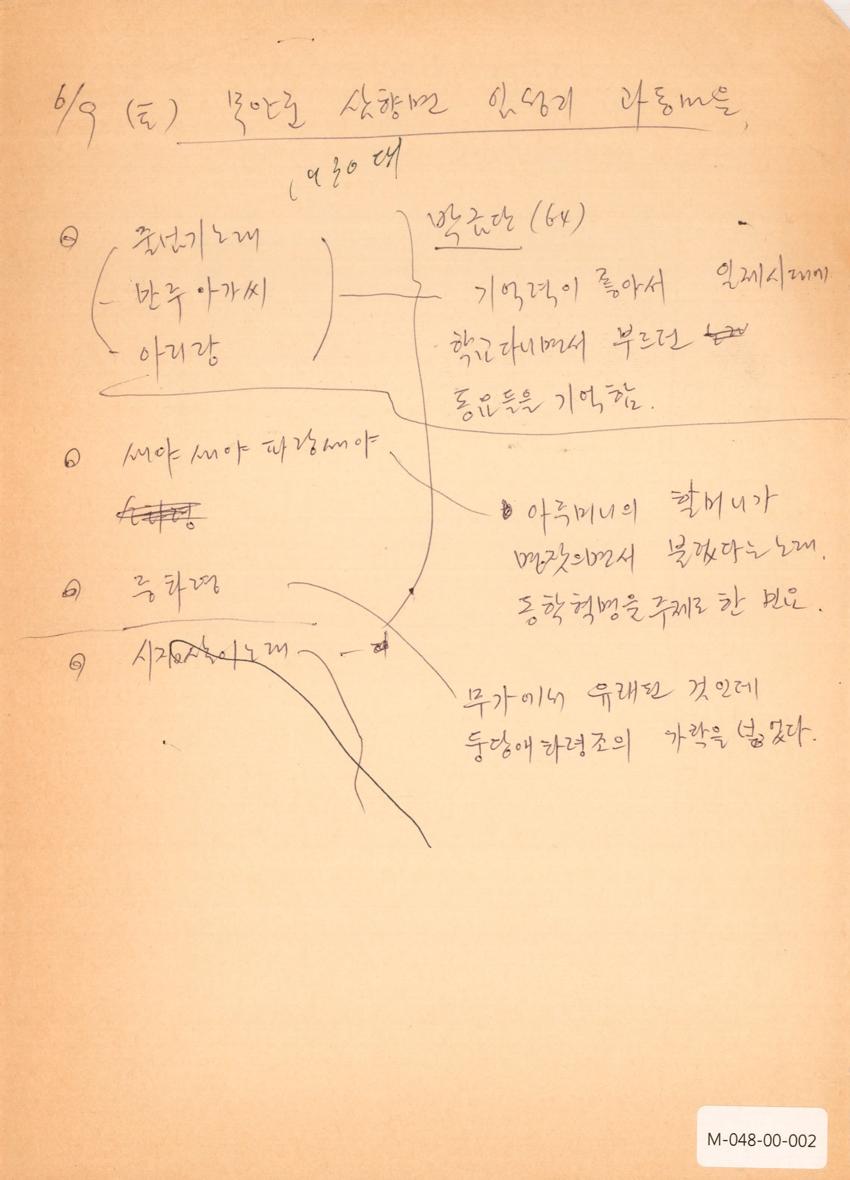 6/9 (토) 무안군 삼향면 임성리 과동마을
1930대
줄넘기노래
만주 아가씨
아리랑
박금단 (64)
기억력이 좋아서 일제시대에
학교다니면서 부르던
동요들을 기억함.
새야 새야 파랑새야
아주머니의 할머니가
명잣으면서 불렀다는 노래.
동학혁명을 주제로 한 민요.
중타령
시집살이노래
무가에서 유래된 것인데
둥당애타령조의 가락을
M-048-00-002